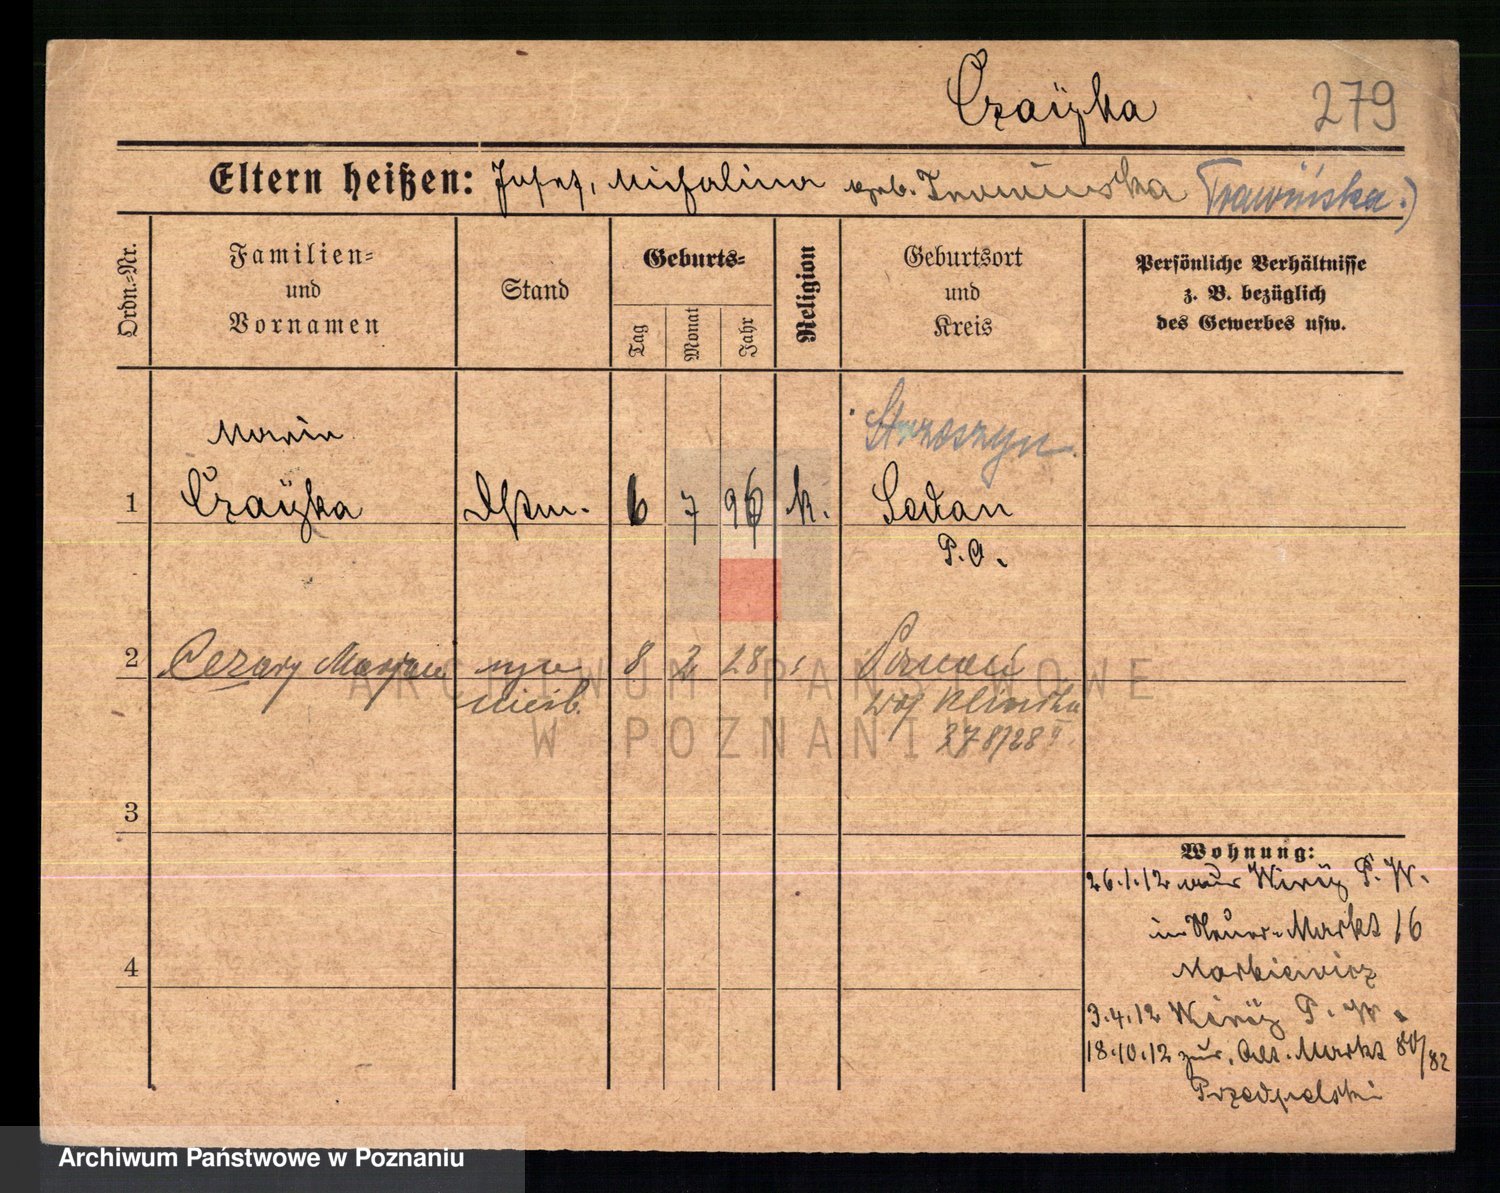 Czaÿka 279
Eltern heißen: Josef, Michalina geb. Trawinska (Trawińska.)
Ordn.-Nr.
Familien-
und
Vornamen
Stand
Geburts-
Tag
Monat
Jahr
Religion
Geburtsort
und
Kreis
Persönliche Verhältnisse
z. B. bezüglich
des Gewerbes usw.
Maria
Strzeszyn.
1 Czaÿka 6 7 96 k. Sedan
P.O.
2 Cezary Marjan syn 8 2 28 Poznań
nieśl. woj Klinika
378/28
3
4
Wohnung:
26.1.12 Wirÿ P. W.
Neuer-Markt 16
Markiewicz
3.4.12 Wirÿ P. W.
18.10.12 zur. Alt. Markt 80/82
Przedpelski
ARCHIWUM PAŃSTWOWE
W POZNANIU
Archiwum Państwowe w Poznaniu